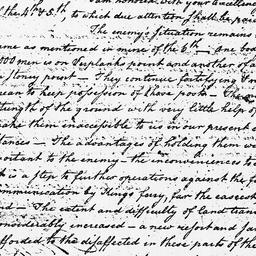 I am honored with your Excellency
of the 4th & 5th, to which due attention shall be paid
The enemy's situation remains
same as mentioned in mine of the 6th — one body
000 men is on Verplanks point and another of a
Stoney point — They continue fortifying and
mean to keep possession of these posts — The
strength of the ground with very little help of
make them inaccessible to us in our present c
stances — The advantages of holding them w
portant to the enemy — the inconveniences to
is a step to further operations against the f
ommunication by Kings ferry, far the easiest
d — The extent and difficulty of land tran
onsiderably increased — a new resort and San
fforded to the disaffected in these parts of the